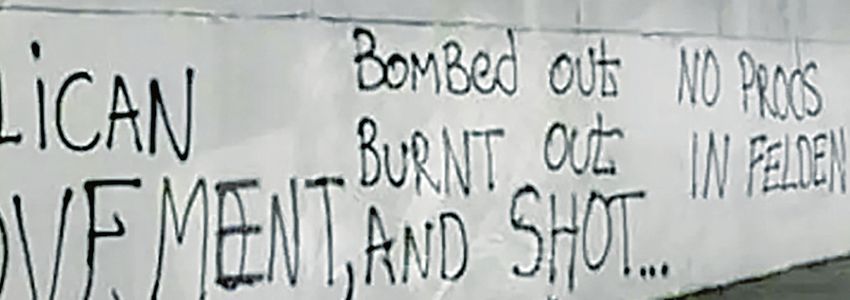 LICAN
OVEMEENT,
BOMBED out
BURNT out
AND SHOT...
NO PRODS
IN FELDEN